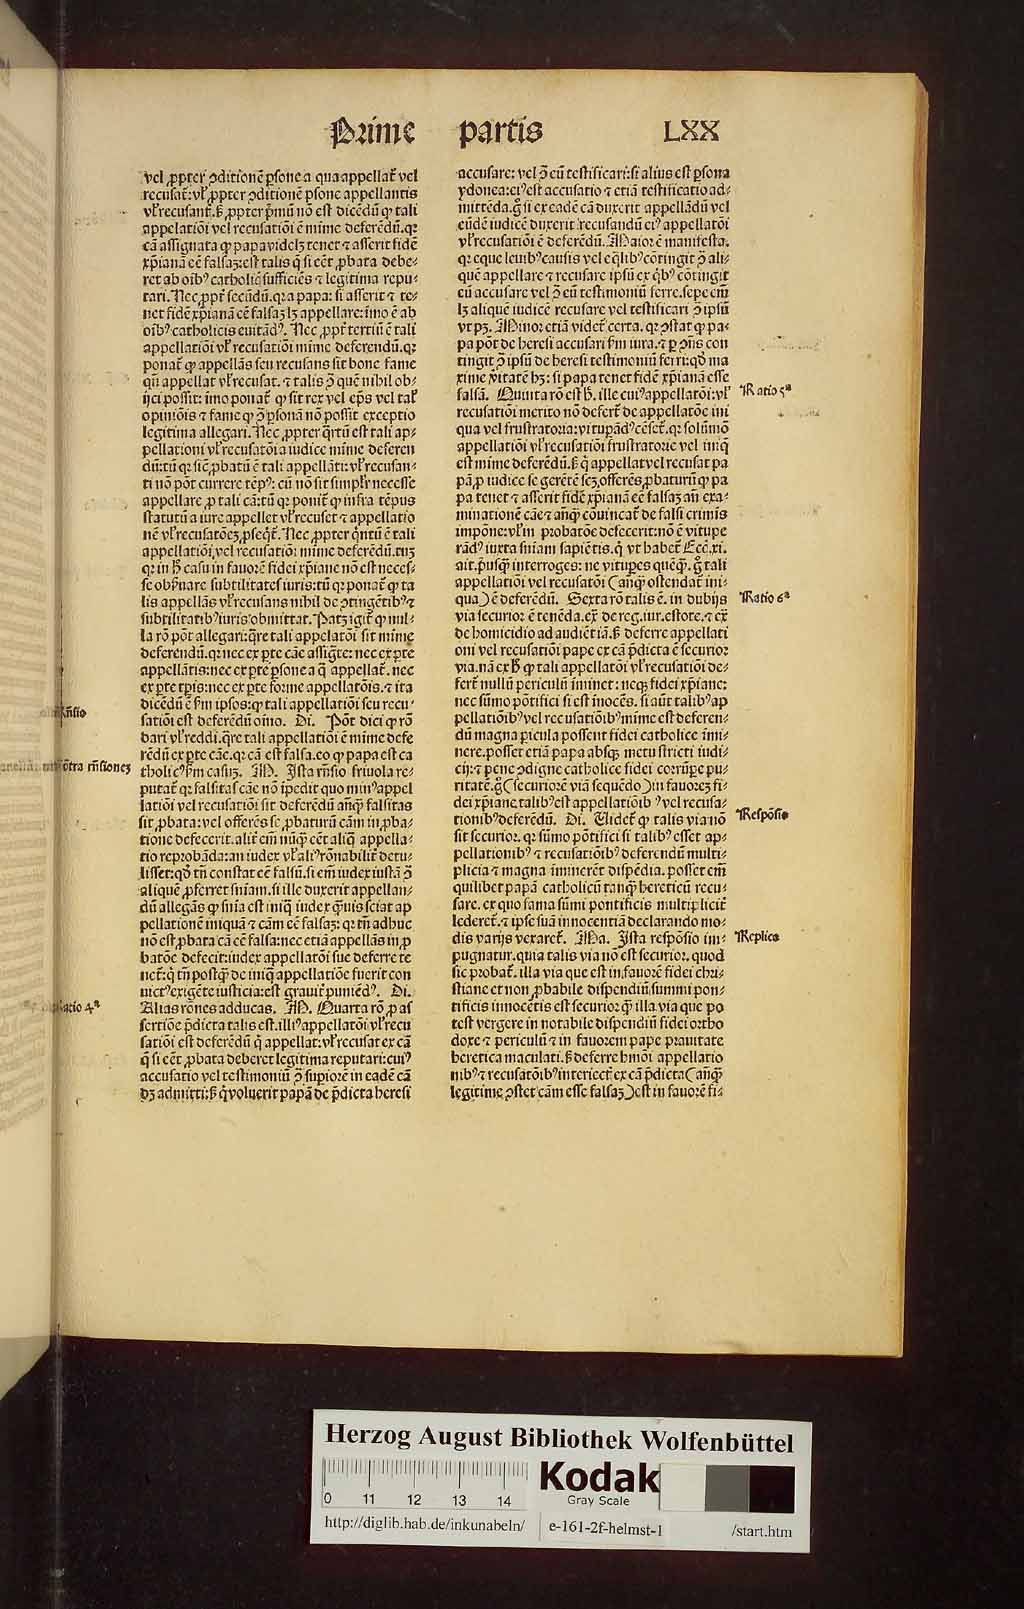 Prime partis LXX
vel ꝓpter ꝯditionē ꝑsone a qua appellat᷑ vel
recusat᷑: vl' ꝓpter ꝯditionē ꝑsone appellantis
vl' recusant᷑. ſꝫ ꝓpter primū nō est dicēdū ꝙ tali
appelatiōi vel recusatiōi ē mime deferēdū. qꝛ
cā assignata ꝙ papa videlꝫ tenet ⁊ asserit fidē
xp̄ianā eē falsaꝫ: est talis q̄ si eēt ꝓbata debe⸗
ret ab oībꝰ catholicis sufficiēs ⁊ legitima repu⸗
tari. Nec ꝓpt᷑ secūdū. qꝛ a papa: si asserit ⁊ te⸗
net fidē xp̄ianā eē falsaꝫ lꝫ appellare: īmo ē ab
oībꝰ catholicis euitādꝰ. Nec ꝓpt᷑ tertiū ē tali
appellatiōi vl' recusatiōi mime deferendū. qꝛ
ponat᷑ ꝙ appellās seu recusans sit bone fame
qn̄ appellat vl' recusat. ⁊ talis ꝯ̄ quē nihil ob⸗
ijci possit: imo ponat᷑ ꝙ sit rex vel ep̄s vel tal'
opiniōis ⁊ fame ꝙ ꝯ̄ ꝑsonā nō possit exceptio
legitima allegari. Nec ꝓpter q̄rtū est tali ap⸗
pellationi vl' recusatōi a iudice mime deferen
dū: tū qꝛ sic ꝓbatū ē tali appellāti: vl' recusan⸗
ti nō pōt currere tēpꝰ: cū nō sit simplr̄ necesse
appellare ꝓ tali cā: tū qꝛ ponit᷑ ꝙ infra tēpus
statutū a iure appellet vl' recuset ⁊ appellatio
nē vl' recusatōeꝫ ꝓseq̄t᷑. Nec ꝓpter q̄ntū ē tali
appellatiōi, vel recusatiōi mime deferēdū. tuꝫ
qꝛ in hͦ casu in fauorē fidei xp̄iane nō est neces⸗
se obſuare subtilitates iuris: tū qꝛ ponat᷑ ꝙ ta
lis appellās vl' recusans nihil de ꝯtingētibꝰ ⁊
subtilitatibꝰ iuris obmittat. Patꝫ igit᷑ ꝙ nul⸗
la rō pōt allegari: q̄re tali appelatōi sit mime
deferendū. qꝛ nec ex ꝑte cāe assig̅te: nec ex ꝑte
appellātis: nec ex ꝑte ꝑsone a q̄ appellat᷑. nec
ex ꝑte tꝑis: nec ex ꝑte forme appellatōis. ⁊ ita
dicēdū ē ẜm ipsos: ꝙ tali appellatiōi seu recu⸗
satiōi est deferēdū oīno. Di. Pōt dici ꝙ rō
dari vl' reddi. q̄re tali appellatiōi ē mime defe
rēdū ex ꝑte cāe. qꝛ cā est falsa. eo ꝙ papa est ca
tholicꝰ ẜm casuꝫ. M. Ista rn̄sio friuola re⸗
putat᷑ qꝛ falsitas cāe nō īpedit quo minꝰ appel
latiōi vel recusatiōi sit deferēdū anq̄ᷓ falsitas
sit ꝓbata: vel offerēs se ꝓbaturū cām in ꝓba⸗
tione defecerit. alit᷑ em̄ nūq̄ᷓ eēt aliq̄ appella⸗
tio reprobāda: an iudex vl' aliꝰ rōnabilit᷑ detu⸗
lisset: qd̄ tn̄ constat eē falsū. si em̄ iudex iustā ꝯ̄
aliquē ꝓferret sn̄iam. si ille duxerit appellan⸗
dū allegās ꝙ sn̄ia est iniq̄ iudex q̄muis sciat ap
pellationē iniquā ⁊ cām eē falsaꝫ: qꝛ tn̄ adhuc
nō est ꝓbata cā eē falsa: nec etiā appellās in ꝓ
batōe defecit: iudex appellatōi sue deferre te
net᷑: q̄ tn̄ postq̄ᷓ de iniq̄ appellatiōe fuerit con
uictꝰ exigēte iusticia: est grauit᷑ puniēdꝰ. Di.
Alias rōnes adducas. M. Quarta rō ꝓ as
sertiōe p̄dicta talis est. illiꝰ appellatōi vl' recu
satiōi est deferēdū q̄ appellat: vl' recusat ex cā
q̄ si eēt ꝓbata deberet legitima reputari: cuiꝰ
accusatio vel testimoniū ꝯ̄ supiorē in eadē cā
dꝫ admitti: ſꝫ q̄ voluerit papā de p̄dicta heresi
accusare: vel ꝯ̄ eū testificari: si alius est ꝑsona
ydonea: eiꝰ est accusatio ⁊ etiā testificatio ad⸗
mittēda. gͦ si ex eadē cā duxerit appellādū vel
eūdē iudicē duxerit recusandū eiꝰ appellatōi
vl' recusatiōi ē deferēdū. Maior ē manifesta.
qꝛ eque leuibꝰ causis vel eq̄libꝰ cōtingit ꝯ̄ ali⸗
quē appellare ⁊ recusare ipsū ex q̄bꝰ cōtingit
eū accusare vel ꝯ̄ eū testimoniū ferre. sepe em̄
lꝫ aliquē iudicē recusare vel testificari ꝯ̄ ipsū
vt pꝫ. Minor etiā videt᷑ certa. qꝛ ꝯstat ꝙ pa⸗
pa pōt de heresi accusari ẜm iura. ⁊ ꝑ ꝯn̄s con
tingit ꝯ̄ ipsū de heresi testimoniū ferri: qd̄ ma
xime v̄itatē hꝫ: si papa tenet fidē xp̄ianā esse
falsā. Quinta rō est hͨ. ille cuiꝰ appellatiōi: vl'
recusatiōi merito nō defert᷑ de appellatōe ini
qua vel frustratoria: vitupādꝰ cēset᷑. qꝛ solūmō
appellatiōi vl' recusatiōi frustratorie vel iniq̄
est mime deferēdū. ſꝫ q̄ appellat vel recusat pa
pā ꝓ iudice se gerētē seꝫ offerēs ꝓbaturū ꝙ pa
pa tenet ⁊ asserit fidē xp̄ianā eē falsaꝫ an̄ exa⸗
minationē cāe ⁊ anq̄ᷓ cōuincat᷑ de falsi crimīs
impōne: vl' in probatōe defecerit: nō ē vitupe
rādꝰ iuxta sn̄iam sapiētis. q̄ vt habet᷑ Ecc̄. xi.
ait. p̄usq̄ᷓ interroges: ne vituperes quēq̄ᷓ. gͦ tali
appellatiōi vel recusatōi (anq̄ᷓ ostendat᷑ ini⸗
qua) ē deferēdū. Sexta rō talis ē. in dubijs
via securior ē tenēda. ex̄ de reg. iur. estote. ⁊ ex̄
de homicidio ad audiētiā. ſꝫ deferre appellati
oni vel recusatiōi pape ex cā p̄dicta ē securior
via. nā ex hͦ ꝙ tali appellatōi vl' recusatiōi de⸗
fert᷑ nullū periculū iminet: neqꝫ fidei xp̄iane:
nec sūmo pōtifici si est inocēs. si aūt talibꝰ ap
pellatiōibꝰ vel recusatiōibꝰ mime est deferen⸗
dū magna ꝑicula possent fidei catholice īmi⸗
nere. posset etiā papa absqꝫ metu stricti iudi⸗
cij: ⁊ pene ꝯdigne catholice fidei corrūpe pu⸗
ritatē. gͦ (securiorē viā sequēdo) in fauoreꝫ fi⸗
dei xp̄iane talibꝰ est appellatiōibꝰ vel recusa⸗
tionibꝰ deferēdū. Di. Uidet᷑ ꝙ talis via nō
sit securior. qꝛ sūmo pōtifici si talibꝰ esset ap⸗
pellationibꝰ ⁊ recusatiōibꝰ deferendū multi⸗
plicia ⁊ magna iminerēt dispēdia. posset em̄
quilibet papā catholicū tanq̄ᷓ hereticū recu⸗
sare. ex quo fama sūmi pontificis multiplicit᷑
lederet᷑. ⁊ ipse suā innocentiā declarando mo⸗
dis varijs vexaret᷑. Ma. Ista respōsio im⸗
pugnatur. quia talis via nō est securior. quod
sic probat᷑. illa via que est in fauorē fidei chri⸗
stiane et non ꝓbabile dispendiū summi pon⸗
tificis innocētis est securior q̄ᷓ illa via que po
test vergere in notabile dispendiū fidei ortho
doxe ⁊ periculū ⁊ in fauorem pape prauitate
heretica maculati. ſꝫ deferre hmōi appellatio
nibꝰ ⁊ recusatōibꝰ interiect᷑ ex cā p̄dicta (anq̄ᷓ
legitime ꝯstet cām esse falsaꝫ) est in fauorē fi⸗
rn̄sio
ōtra rn̄siones
Ratio 4ª
Ratio 5ª
Ratio 6ª
Respōsio
Replica
Herzog August Bibliothek Wolfenbüttel
0 11 12 13 14
Kodak
Gray Scale
http://diglib.hab.de/inkunabeln/ e-161-2f-helmst-1 /start.htm